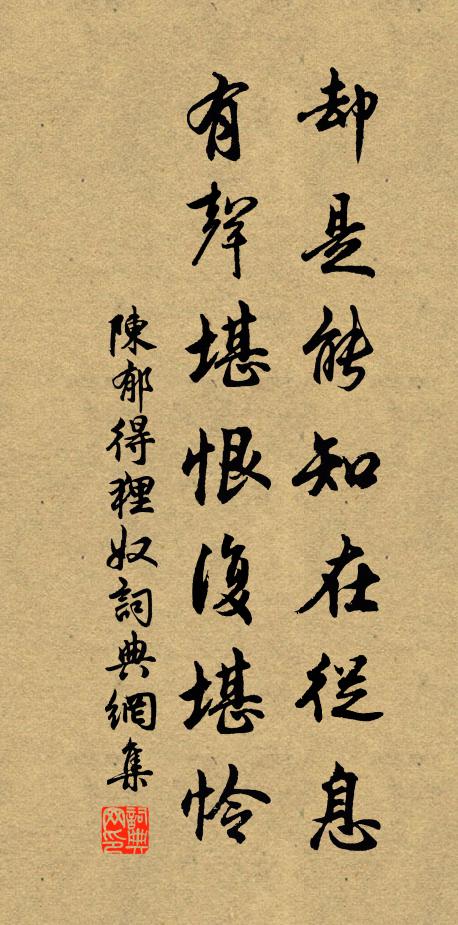 却是能知在從息
有聲堪恨復堪怜
陳郁得狸奴詞典網集
詞典网印